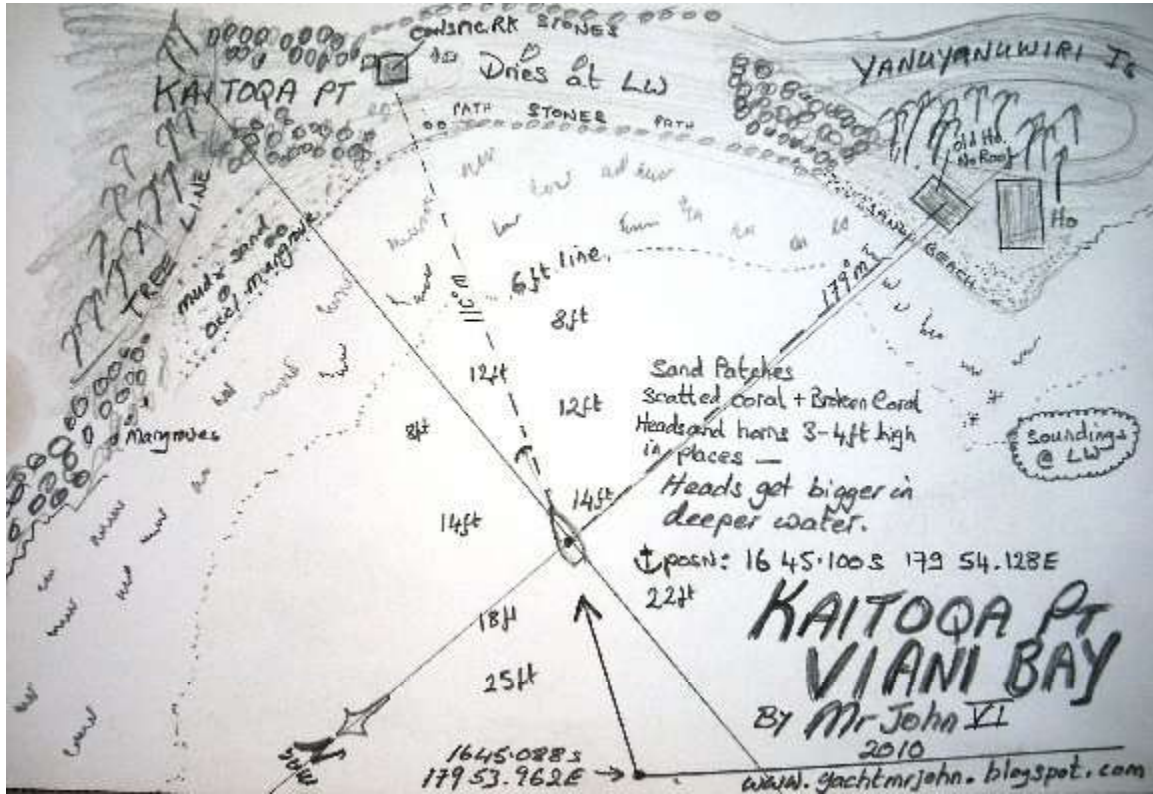 STONES
KAITOQA PT
Dries at LW
YANUYANUWIRI Is
PATH STONES PATH
old Ho.
No Roof
Ho
SANDY BEACH
TREE LINE
mud & sand
occl. mangrove
6ft line.
110°M
179°M
8ft
12ft
12ft
8ft
Mangroves
Sand Patches
Scatted coral + Broken Coral
Heads and horns 3-4ft high
in places —
Heads get bigger in
deeper water.
Soundings
@ LW
14ft
14ft
posn: 16 45.100S 179 54.128E
22ft
18ft
25ft
KAITOQA PT
VIANI BAY
BY Mr John VI
2010
www.yachtmrjohn.blogspot.com
1645.088S
17953.962E
N